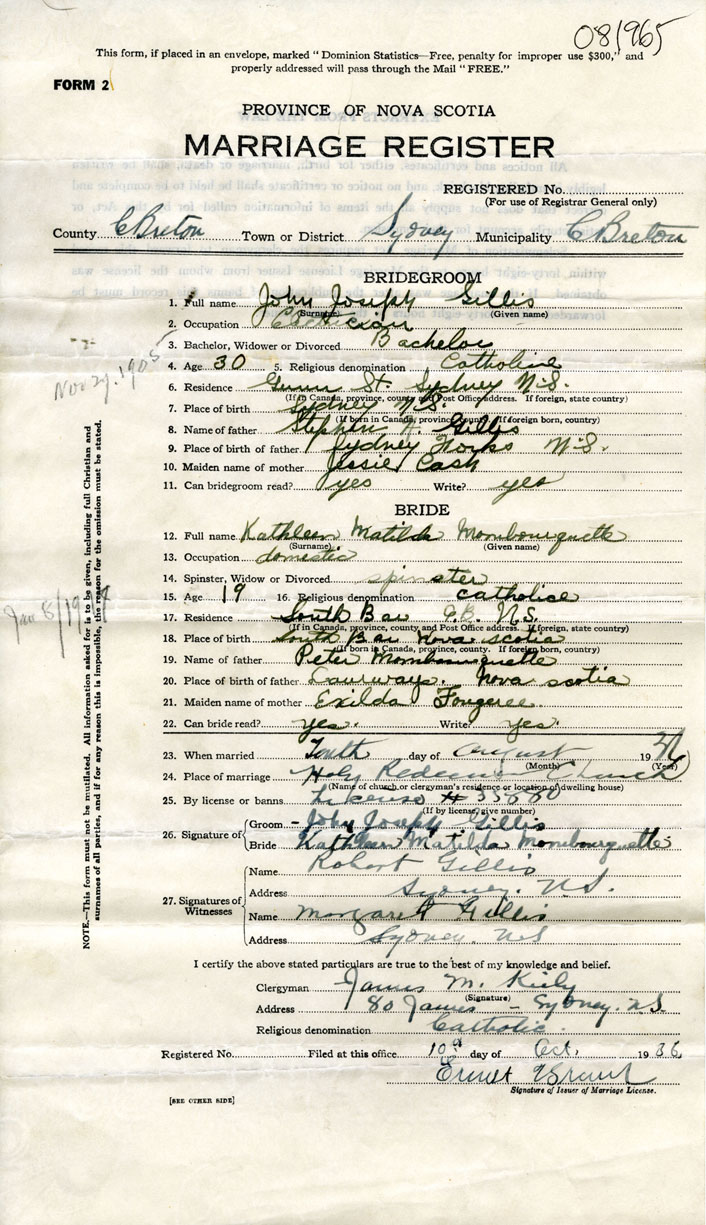 08/965
This form, if placed in an envelope, marked “Dominion Statistics—Free, penalty for improper use $300,” and
properly addressed will pass through the Mail “FREE.”
FORM 2
PROVINCE OF NOVA SCOTIA
MARRIAGE REGISTER
REGISTERED No.
(For use of Registrar General only)
County C Breton Town or District Sydney Municipality C Breton
BRIDEGROOM
1. Full name John Joseph Gillis
(Surname) (Given name)
2. Occupation
3. Bachelor, Widower or Divorced Bachelor
4. Age 30 5. Religious denomination Catholic
6. Residence St. Sydney N.S.
(If in Canada, province, county and Post Office address. If foreign, state country)
7. Place of birth Sydney N.S.
(If born in Canada, province, county. If foreign born, country)
8. Name of father Stephen A. Gillis
9. Place of birth of father Sydney Forks N.S.
10. Maiden name of mother Jessie Cash
11. Can bridegroom read? yes Write? yes
BRIDE
12. Full name Kathleen Matilda Mombourquette
(Surname) (Given name)
13. Occupation domestic
14. Spinster, Widow or Divorced spinster
15. Age 19 16. Religious denomination catholice
17. Residence South Bar C.B. N.S.
(If in Canada, province, county, and Post Office address. If foreign, state country)
18. Place of birth South Bar Nova scotia
(If born in Canada, province, county. If foreign born, country)
19. Name of father Peter Mombourquette
20. Place of birth of father Nova scotia
21. Maiden name of mother Exilda Fougeree
22. Can bride read? yes. Write? yes.
23. When married Tenth day of August 1936
(Month) (Year)
24. Place of marriage Holy Redeemer Church
(Name of church or clergyman's residence or location of dwelling house)
25. By license or banns License #
(If by license, give number)
26. Signature of
Groom - John Joseph Gillis
Bride Kathleen Matilda Mombourquette
27. Signatures of Witnesses
Name Robert Gillis
Address Sydney. N.S.
Name Margaret Gillis
Address Sydney. N.S
I certify the above stated particulars are true to the best of my knowledge and belief.
Clergyman James M. Kiely
(Signature)
Address 80 James - Sydney. N.S.
Religious denomination Catholic.
Registered No. Filed at this office 10th day of Oct. 1936
Signature of Issuer of Marriage License.
[SEE OTHER SIDE]
NOTE.—This form must not be mutilated. All information asked for is to be given, including full Christian and
surnames of all parties, and if for any reason this is impossible, the reason for the omission must be stated.
Nov 29. 1905